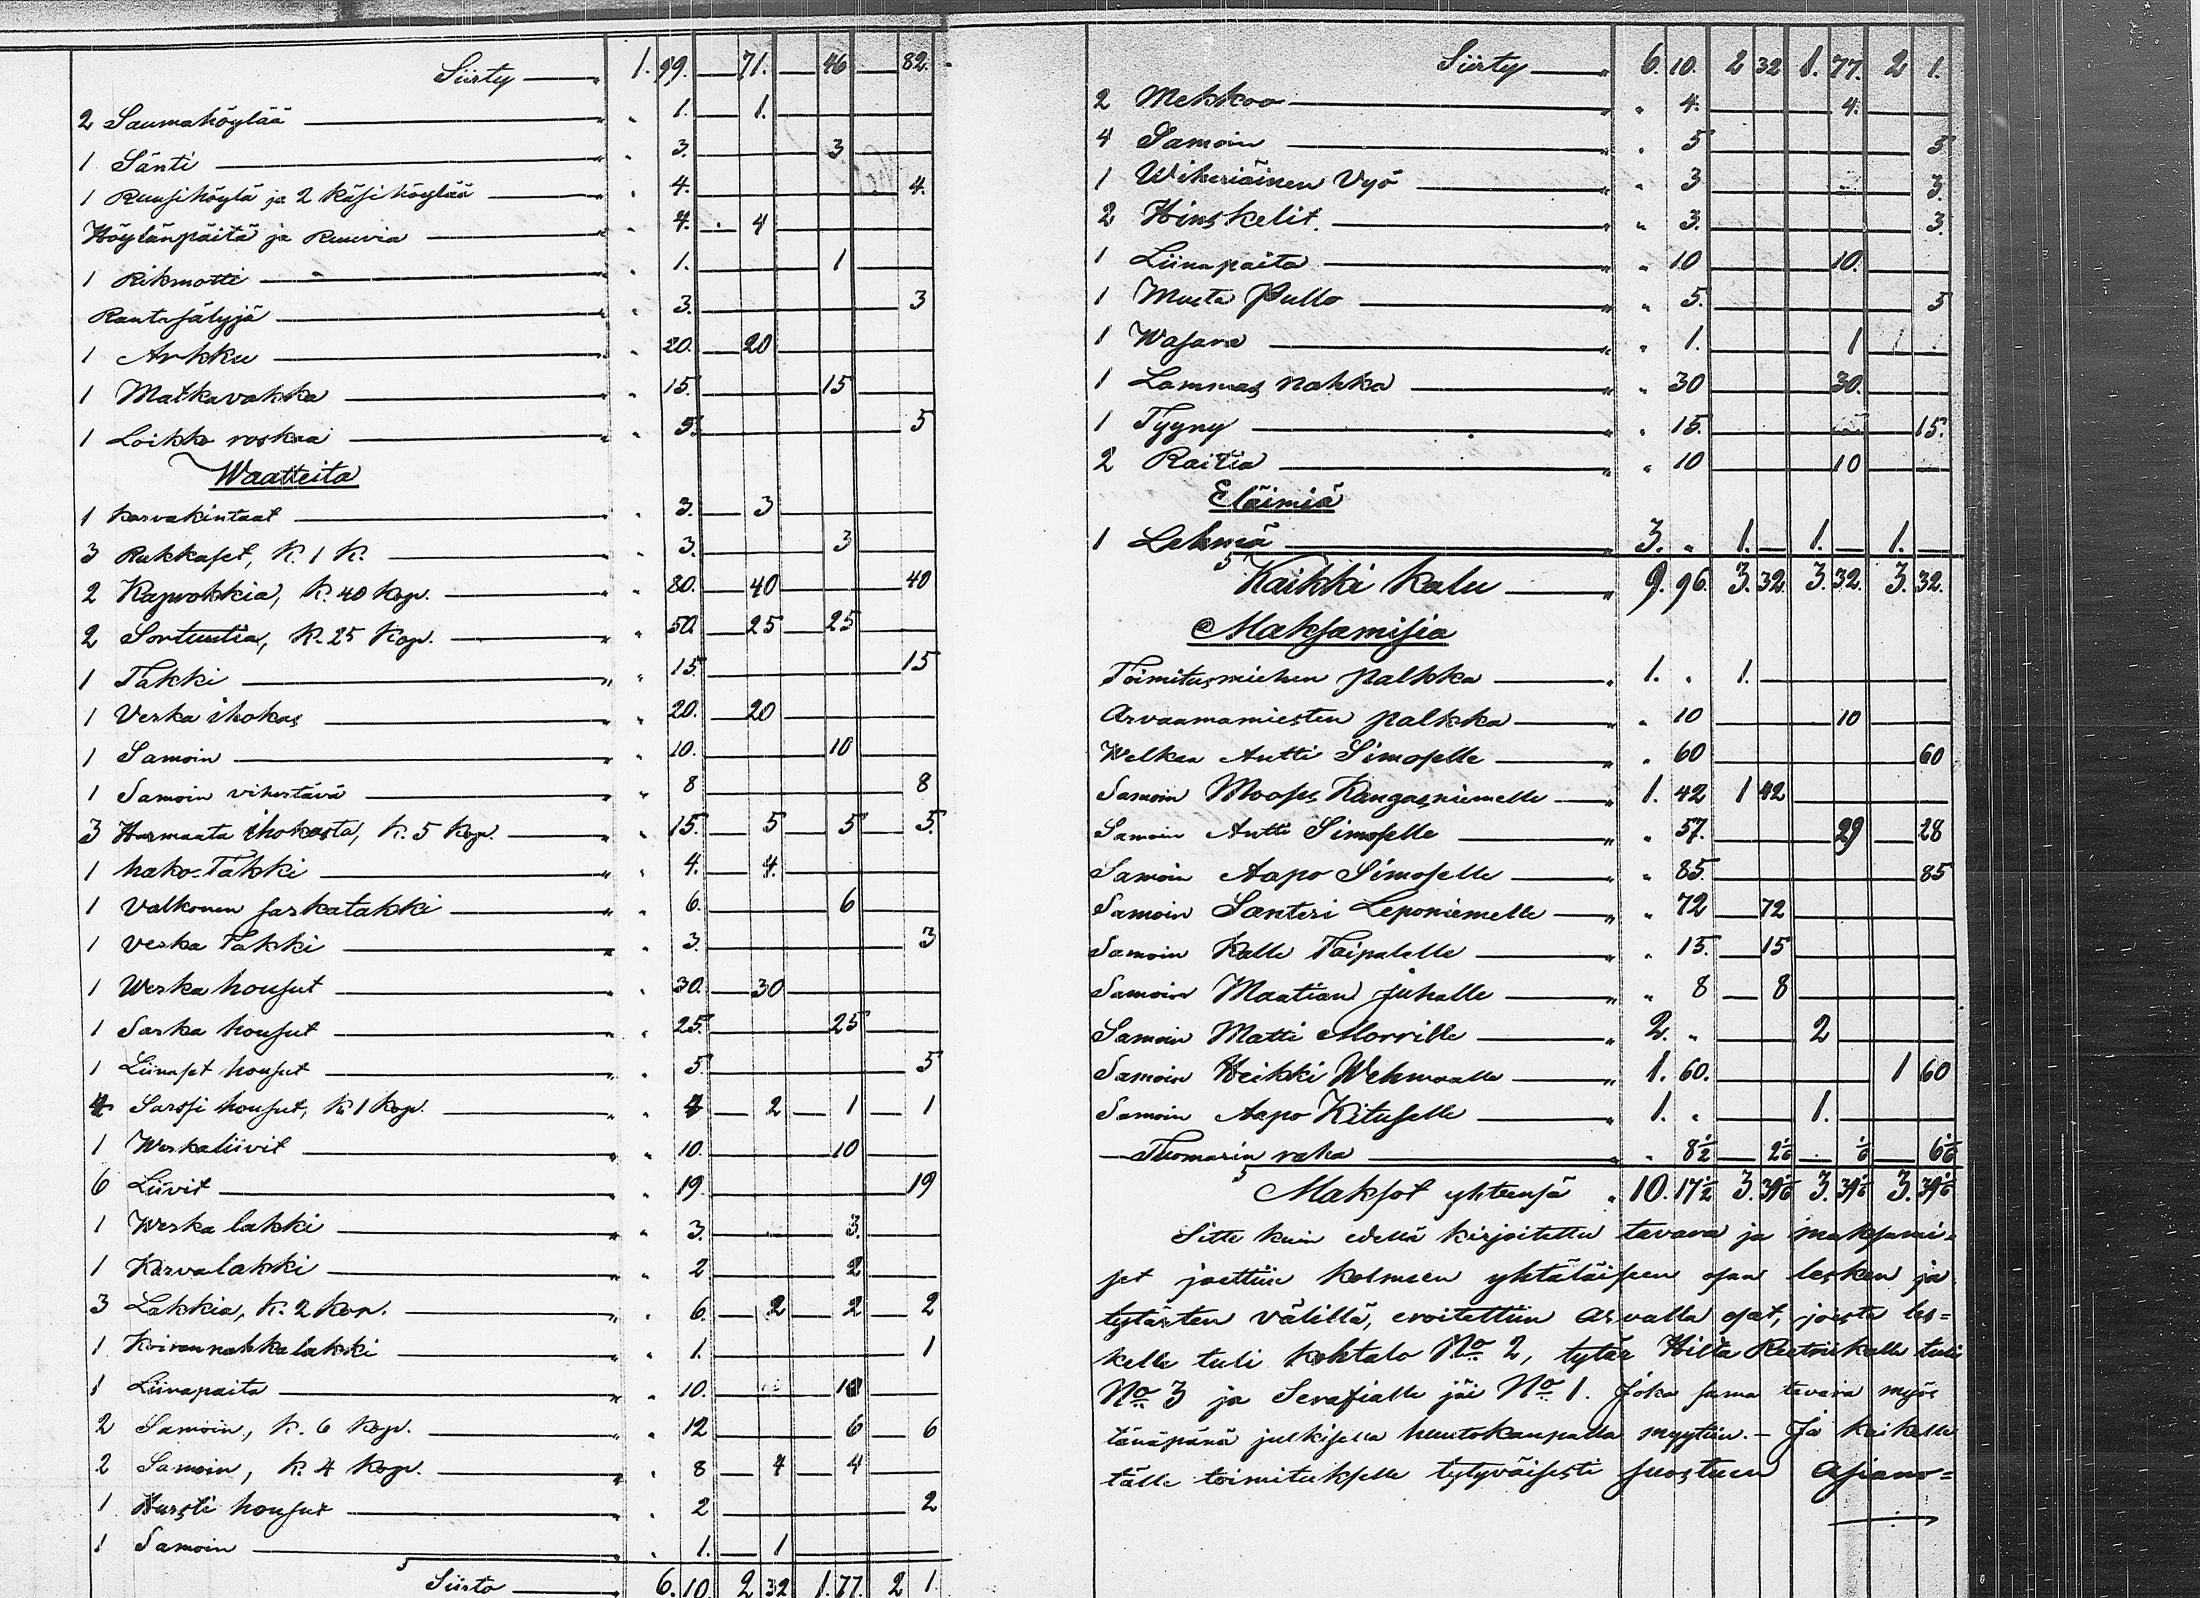 Siirty — " 1. 99. — 71. — 46 — 82.
2 Saumahöylää — " " 1. — 1.
1 Sänti — " " 3. — 3
1 Ruusihöylä ja 2 Käsihöylää — " 4. — 4.
Höylänpäitä ja Ruuvia — " 4. " 4
1 Rikmotti — " 1. — 1
Rautasälyjä — " 3. — 3
1 Arkku — " 20. — 20
1 Matkavakka — " 15. — 15
1 Loikko roskaa — " 5. — 5
Waatteita
1 Karvakintaat — " 3. — 3
3 Rukkaset, K. 1 K. — " 3. — 3
2 Kapvokkia, K. 40 Kop. — " 80. — 40 — 40
2 Sortuutia, K. 25 Kop. — " 50. — 25 — 25
1 Takki — " " 15. — 15
1 Verka ihokas — " " 20. — 20
1 Samoin — " " 10. — 10
1 Samoin vihertävä — " " 8 — 8
3 Harmaata ihokasta, K. 5 Kop. — " 15. — 5 — 5 — 5.
1 hako-Takki — " " 4. — 4.
1 Valkonen sarkatakki — " " 6. — 6
1 Verka Takki — " " 3. — 3
1 Werka housut — " " 30. — 30
1 Sarka housut — " " 25. — 25
1 Liinaset housut — " " 5. — 5
4 Sarssi housut, K. 1 Kop. — " " 4 — 2 — 1 — 1
1 Werkaliivit — " " 10. — 10
6 Liivit — " " 19. — 19
1 Werka lakki — " " 3. — 3.
1 Karvalakki — " " 2 — 2
3 Lakkia, K. 2 Kop. — " " 6. — 2 — 2 — 2
1 Koirannahkalakki — " " 1. — 1
1 Liinapaita — " " 10. — 10
2 Samoin, K. 6 Kop. — " " 12 — 6 — 6
2 Samoin, K. 4 Kop. — " " 8 — 4 — 4
1 Hursti housut — " " 2 — 2
1 Samoin — " 1. — 1
Siirto — 6. 10. 2 32 1. 77. 2 1.
Siirty — " 6. 10. 2 32 1. 77. 2 1.
2 Mekkoo — " " 4. — 4.
4 Samoin — " " 5 — 5
1 Wiheriäinen Vyö — " " 3 — 3.
2 Hinskelit. — " " 3. — 3.
1 Liinapaita — " " 10 — 10.
1 Musta Pullo — " " 5. — 5
1 Wasara — " " 1. — 1
1 Lammas nahka — " " 30 — 30.
1 Tyyny — " " 15. — 15.
2 Raitia — " " 10 — 10
Eläimiä
1 Lehmä — " 3. " 1. — 1. — 1. —
Kaikki kalu — " 9. 96. 3. 32. 3. 32. 3. 32.
Maksamisia
Toimitusmiehen palkka — " 1. " 1. —
Arvaamamiesten palkka — " " 10 — 10
Welkaa Antti Simoselle — " " 60 — 60
Samoin Mooses Kangasniemelle — " 1. 42 1 42
Samoin Antti Simoselle — " " 57. — 29 — 28
Samoin Aapo Simoselle — " " 85. — 85
Samoin Santeri Leponiemelle — " " 72 — 72
Samoin Kalle Taipalelle — " " 15. — 15
Samoin Maatian Juhalle — " " 8 — 8
Samoin Matti Morrille — " 2. " — 2
Samoin Heikki Wehmaalle — " 1. 60. — 1 60
Samoin Aapo Kituselle — " 1. " — 1.
Tuomarin raha — " 8½ — 2⅙ — ⅙ — 6⅙
Maksot yhteensä " 10. 17½ 3. 39⅙ 3. 39⅙ 3. 39⅙
Sitte kuin edellä kirjoitettu tavara ja maksami=
set jaettiin kolmeen yhtäläiseen osaan lesken ja
tytärten välillä, eroitettiin arvalla osat, joista les=
kelle tuli kohtalo No 2, tytär Hilta Reetriikalle tuli
No 3 ja Serafialle jäi No 1. Joka sama tavara myös
tänäpänä julkisella huutokaupalla myytiin. — Ja kaikelle
tälle toimitukselle tytyväisesti suostuen asiano=